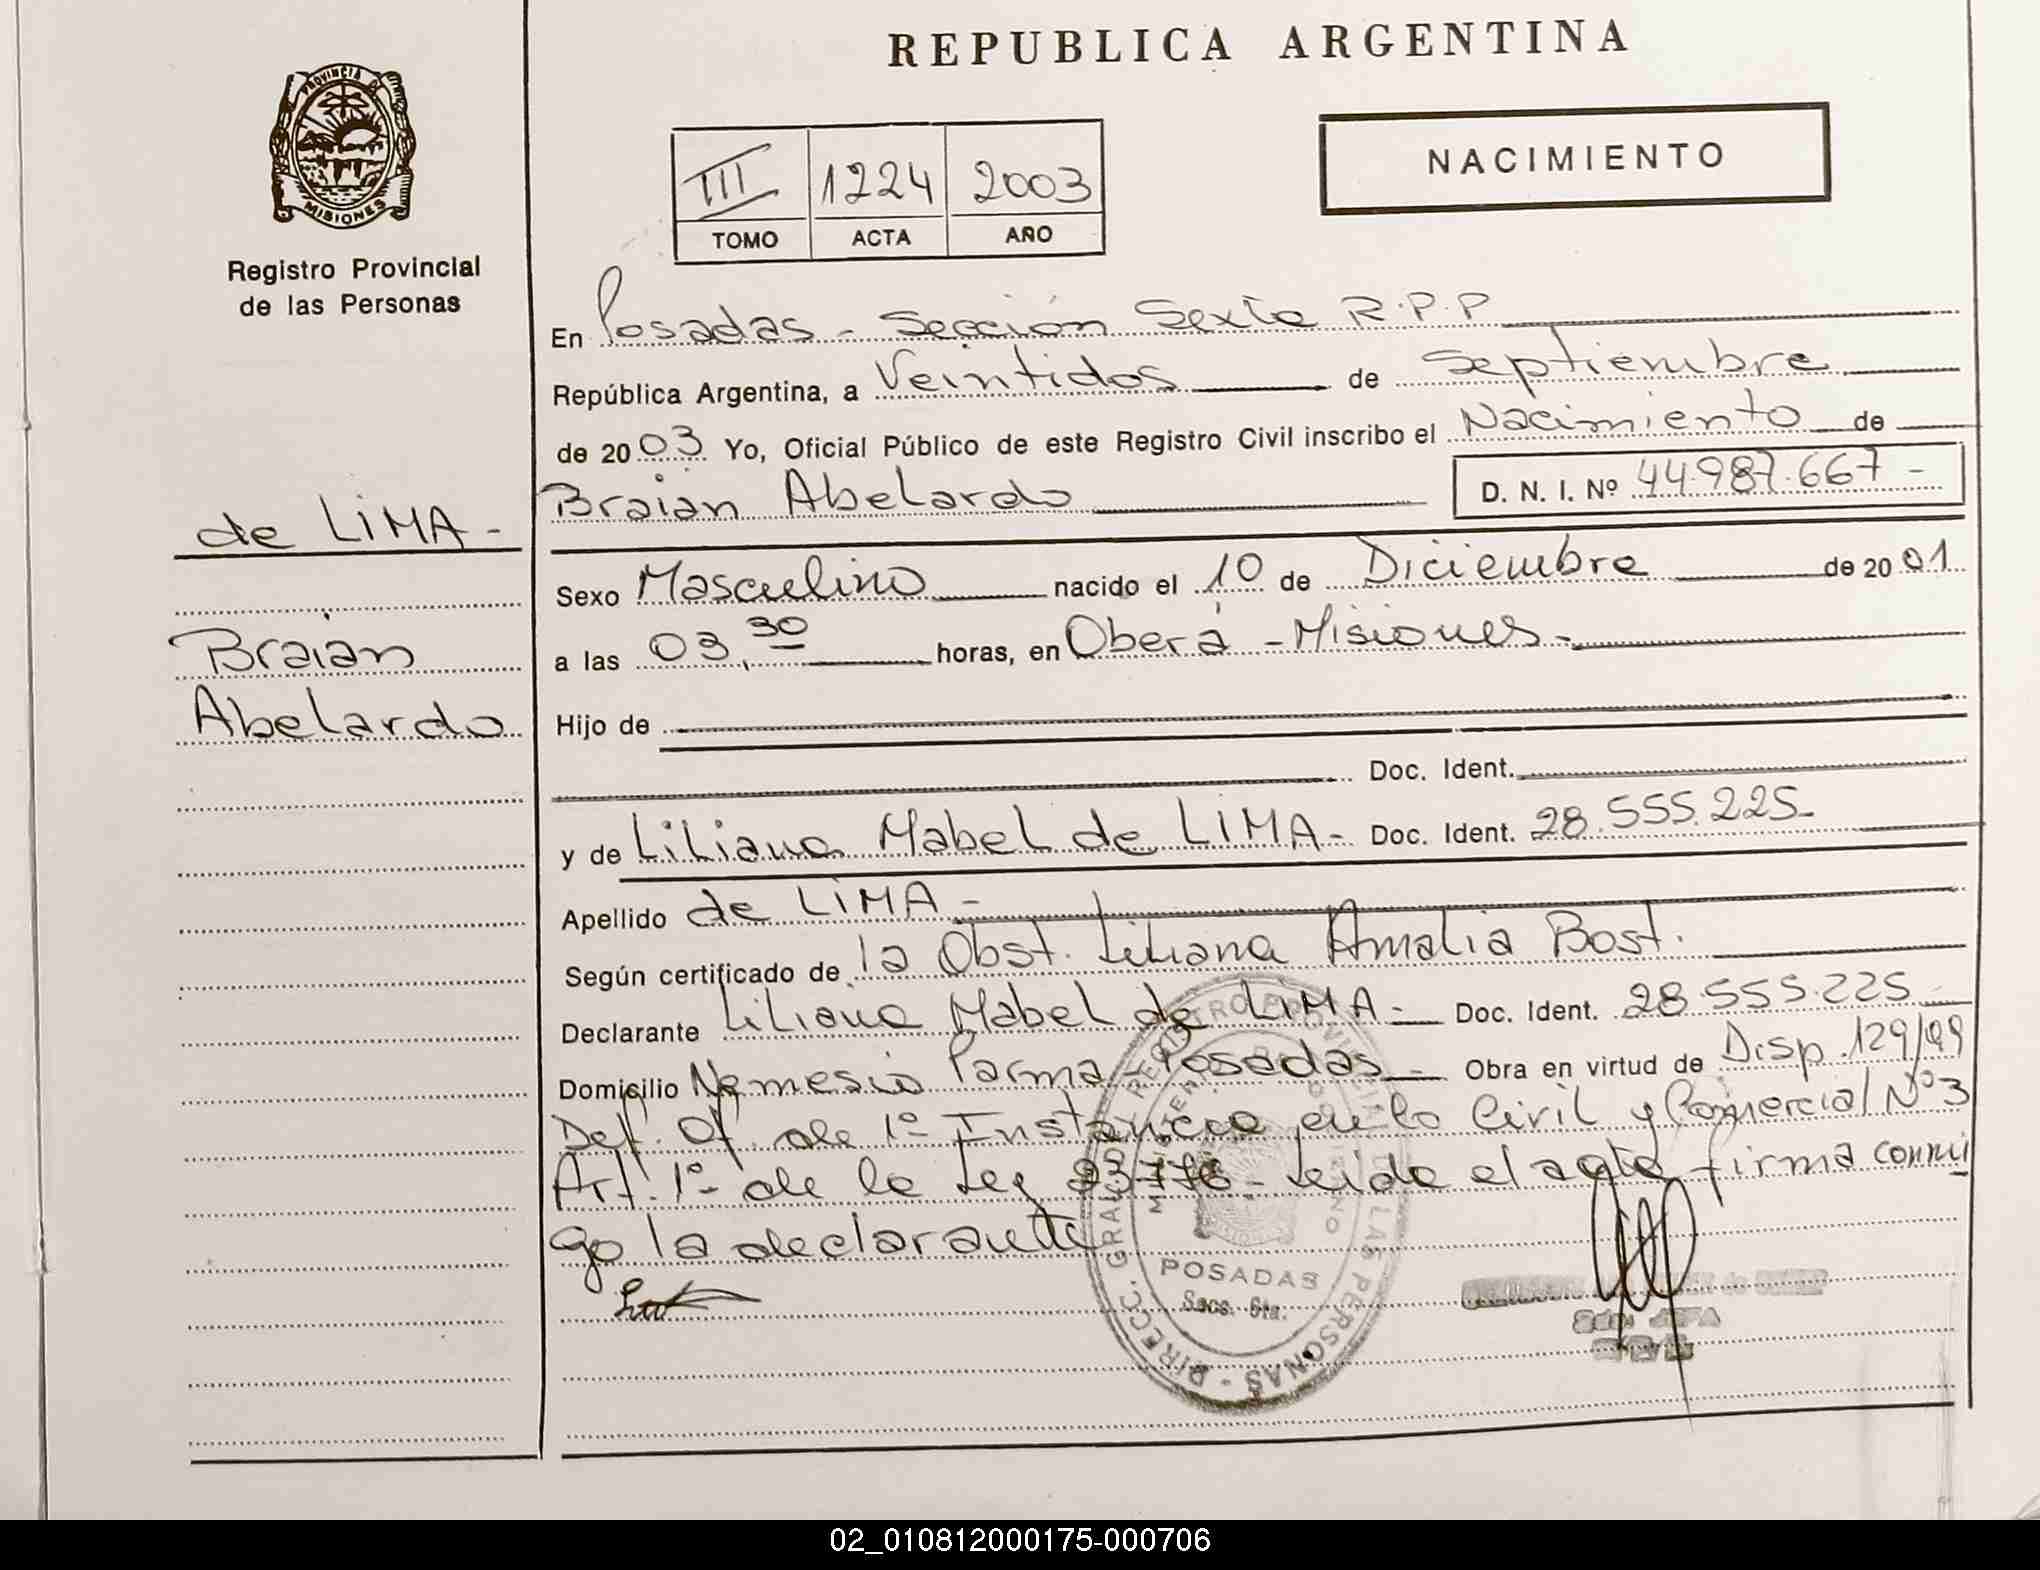 REPUBLICA ARGENTINA
PROVINCIA DE
MISIONES
Registro Provincial
de las Personas
III 1224 2003
TOMO ACTA AÑO
NACIMIENTO
En Posadas - Sección Sexta R.P.P
República Argentina, a Veintidos de Septiembre
de 2003 Yo, Oficial Público de este Registro Civil inscribo el Nacimiento de
Braian Abelardo D. N. I. Nº 44.987.667 -
de LIMA -
Braian
Abelardo
Sexo Masculino nacido el 10 de Diciembre de 2001
a las 03,30 horas, en Oberá - Misiones -
Hijo de
Doc. Ident.
y de Liliana Mabel de LIMA - Doc. Ident. 28.555.225 -
Apellido de LIMA -
Según certificado de la Obst. Liliana Amalia Bost.
Declarante Liliana Mabel de LIMA - Doc. Ident. 28.555.225 -
Domicilio Nemesio Parma - Posadas - Obra en virtud de Disp. 129/99
Def. Of. de 1º Instancia en lo Civil y Comercial Nº 3
Art. 1º de la Ley leida el acta firma conmi
go la declarante
DIRECC. GRAL. DEL REGISTRO PROVINCIAL DE LAS PERSONAS -
POSADAS
Secc. 6ta.
02_010812000175-000706